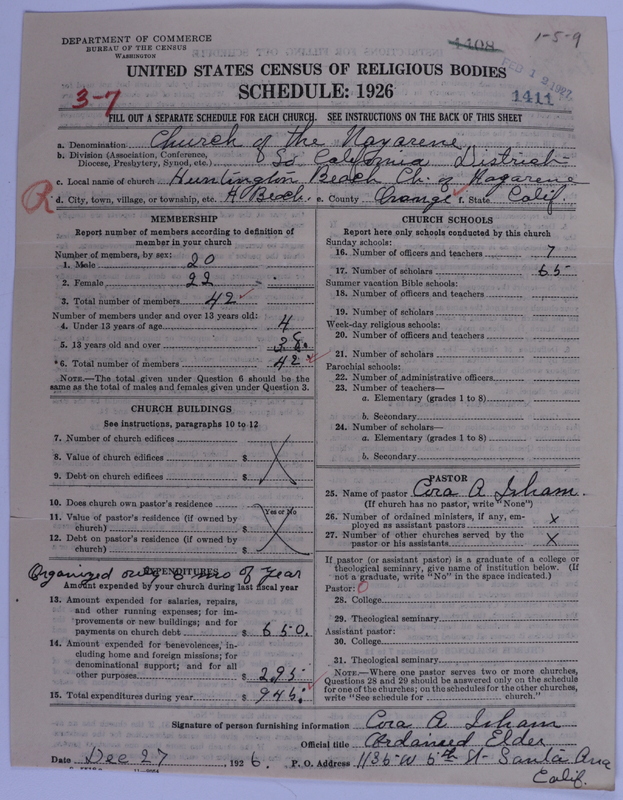 DEPARTMENT OF COMMERCE
BUREAU OF THE CENSUS
WASHINGTON
4408
1-5-9
FEB 12 1927
1411
UNITED STATES CENSUS OF RELIGIOUS BODIES
SCHEDULE: 1926
3-7
FILL OUT A SEPARATE SCHEDULE FOR EACH CHURCH. SEE INSTRUCTIONS ON THE BACK OF THIS SHEET
a. Denomination Church of the Nazarene
b. Division (Association, Conference, Diocese, Presbytery, Synod, etc.) So California District
c. Local name of church Huntington Beach Ch. of Nazarene
R d. City, town, village, or township, etc. H. Beach. e. County Orange f. State Calif.
MEMBERSHIP
Report number of members according to definition of
member in your church
Number of members, by sex:
1. Male 20
2. Female 22
3. Total number of members 42
Number of members under and over 13 years old:
4. Under 13 years of age 4
5. 13 years old and over 38
*6. Total number of members 42
NOTE.—The total given under Question 6 should be the
same as the total of males and females given under Question 3.
CHURCH BUILDINGS
See instructions, paragraphs 10 to 12
7. Number of church edifices
8. Value of church edifices $
9. Debt on church edifices $
10. Does church own pastor's residence
Yes or No
11. Value of pastor's residence (if owned by
church) $
12. Debt on pastor's residence (if owned by
church) $
EXPENDITURES
Organized only 8 mo of year
Amount expended by your church during last fiscal year
13. Amount expended for salaries, repairs,
and other running expenses; for im-
provements or new buildings; and for
payments on church debt $ 650.
14. Amount expended for benevolences, in-
cluding home and foreign missions; for
denominational support; and for all
other purposes $ 295
15. Total expenditures during year $ 945.
CHURCH SCHOOLS
Report here only schools conducted by this church
Sunday schools:
16. Number of officers and teachers 7
17. Number of scholars 65
Summer vacation Bible schools:
18. Number of officers and teachers
19. Number of scholars
Week-day religious schools:
20. Number of officers and teachers
21. Number of scholars
Parochial schools:
22. Number of administrative officers
23. Number of teachers—
a. Elementary (grades 1 to 8)
b. Secondary
24. Number of scholars—
a. Elementary (grades 1 to 8)
b. Secondary
PASTOR
25. Name of pastor Cora A Isham.
(If church has no pastor, write "None")
26. Number of ordained ministers, if any, em-
ployed as assistant pastors x
27. Number of other churches served by the
pastor or his assistants x
If pastor (or assistant pastor) is a graduate of a college or
theological seminary, give name of institution below. (If
not a graduate, write "No" in the space indicated.)
Pastor: 0
28. College
29. Theological seminary
Assistant pastor:
30. College
31. Theological seminary
NOTE.—Where one pastor serves two or more churches,
Questions 28 and 29 should be answered only on the schedule
for one of the churches; on the schedules for the other churches,
write "See schedule for church."
Signature of person furnishing information Cora A Isham
Official title Ordained Elder
Date Dec 27, 1926. P. O. Address 1135 W 5th St - Santa Ana
Calif.